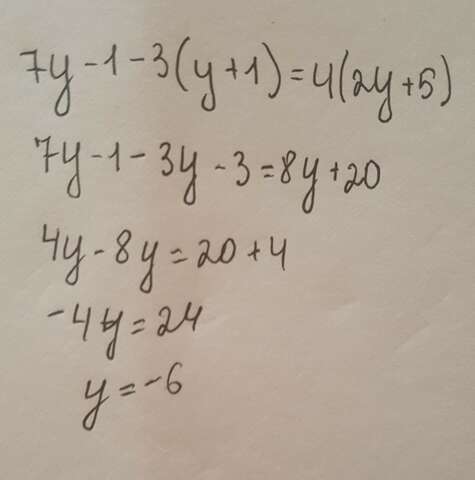 7y-1-3(y+1)=4(2y+5)
7y-1-3y-3=8y+20
4y-8y=20+4
-4y=24
y=-6